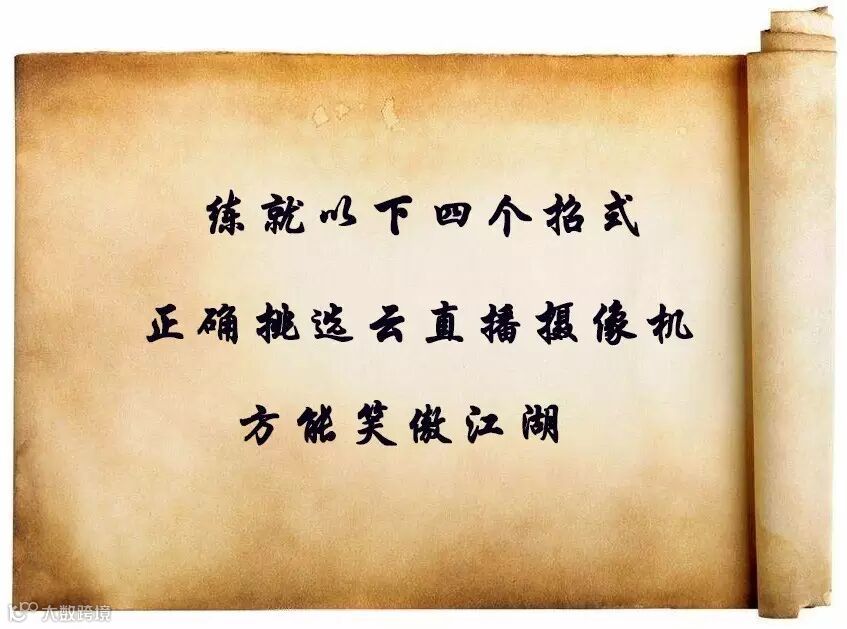 练就以下四个招式
正确挑选云直播摄像机
方能笑傲江湖
大数跨境